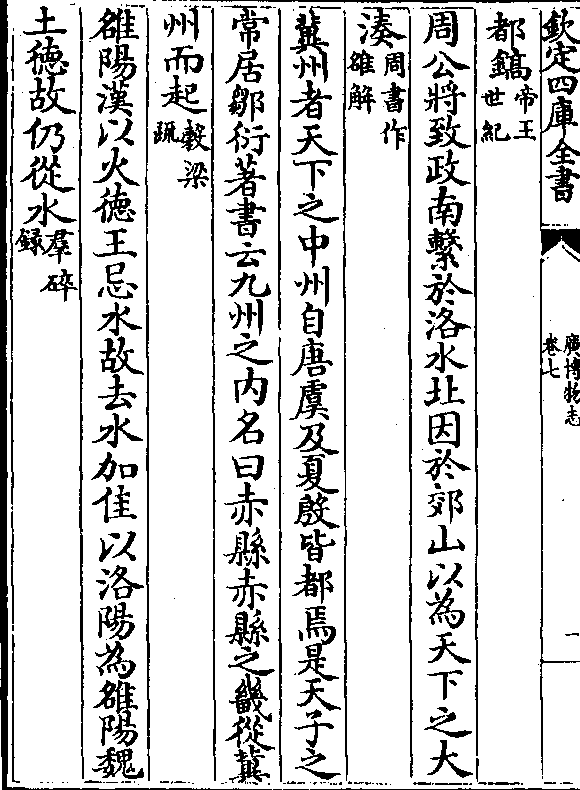 欽定四庫全書
廣博物志
卷七
一
都鎬帝王世紀
周公將致政南繫於洛水北因於郊山以為天下之大
湊周書作雒解
冀州者天下之中州自唐虞及夏殷皆都焉是天子之
常居鄒衍著書云九州之內名曰赤縣赤縣之畿從冀
州而起穀梁疏
雒陽漢以火德王忌水故去水加佳以洛陽為雒陽魏
土德故仍從水羣碎録